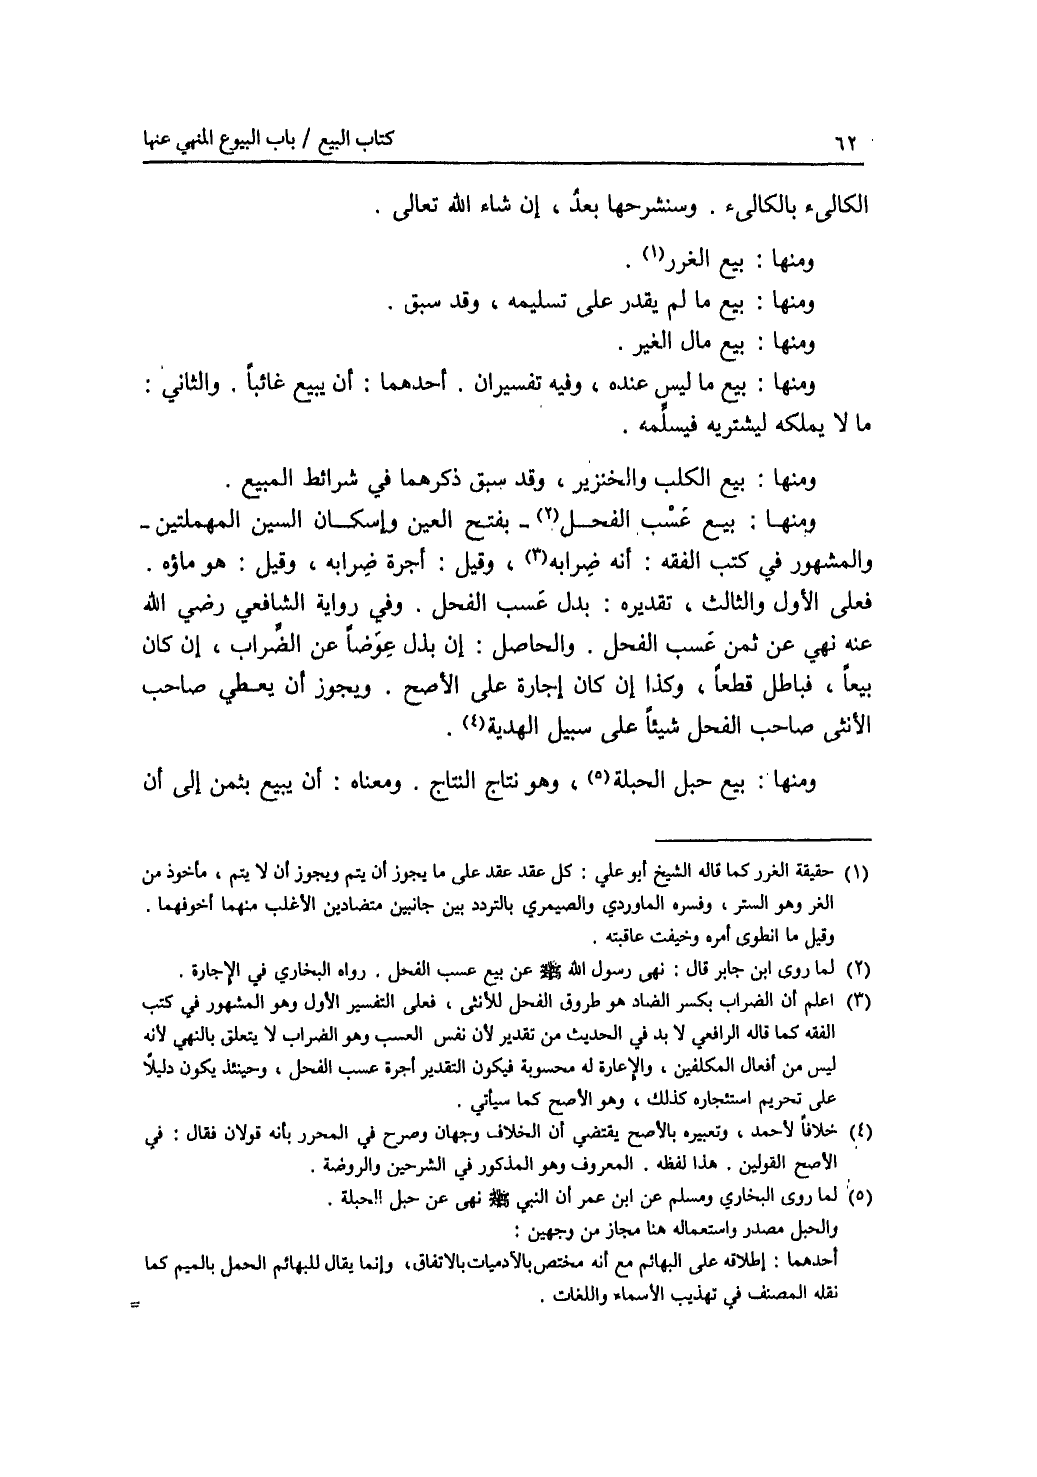 ٦٢ كتاب البيع / باب البيوع المنهي عنها
الكالىء بالكالىء . وسنشرحها بعدُ ، إن شاء الله تعالى .
ومنها : بيع الغرر(١) .
ومنها : بيع ما لم يقدر على تسليمه ، وقد سبق .
ومنها : بيع مال الغير .
ومنها : بيع ما ليس عنده ، وفيه تفسيران . أحدهما : أن يبيع غائباً . والثاني :
ما لا يملكه ليشتريه فيسلِّمه .
ومنها : بيع الكلب والخنزير ، وقد سبق ذكرهما في شرائط المبيع .
ومنها : بيع عَسْب الفحل(٢) ـ بفتح العين وإسكان السين المهملتين ـ
والمشهور في كتب الفقه : أنه ضِرابه(٣) ، وقيل : أجرة ضِرابه ، وقيل : هو ماؤه .
فعلى الأول والثالث ، تقديره : بدل عَسب الفحل . وفي رواية الشافعي رضي الله
عنه نهي عن ثمن عَسب الفحل . والحاصل : إن بذل عِوَضاً عن الضِّراب ، إن كان
بيعاً ، فباطل قطعاً ، وكذا إن كان إجارة على الأصح . ويجوز أن يعطي صاحب
الأنثى صاحب الفحل شيئاً على سبيل الهدية(٤) .
ومنها : بيع حبل الحبلة(٥) ، وهو نتاج النتاج . ومعناه : أن يبيع بثمن إلى أن
(١) حقيقة الغرر كما قاله الشيخ أبو علي : كل عقد عقد على ما يجوز أن يتم ويجوز أن لا يتم ، مأخوذ من
الغر وهو الستر ، وفسره الماوردي والصيمري بالتردد بين جانبين متضادين الأغلب منهما أخوفهما .
وقيل ما انطوى أمره وخيفت عاقبته .
(٢) لما روى ابن جابر قال : نهى رسول الله ﷺ عن بيع عسب الفحل . رواه البخاري في الإجارة .
(٣) اعلم أن الضراب بكسر الضاد هو طروق الفحل للأنثى ، فعلى التفسير الأول وهو المشهور في كتب
الفقه كما قاله الرافعي لا بد في الحديث من تقدير لأن نفس العسب وهو الضراب لا يتعلق بالنهي لأنه
ليس من أفعال المكلفين ، والإعارة له محسوبة فيكون التقدير أجرة عسب الفحل ، وحينئذ يكون دليلاً
على تحريم استئجاره كذلك ، وهو الأصح كما سيأتي .
(٤) خلافاً لأحمد ، وتعبيره بالأصح يقتضي أن الخلاف وجهان وصرح في المحرر بأنه قولان فقال : في
الأصح القولين . هذا لفظه . المعروف وهو المذكور في الشرحين والروضة .
(٥) لما روى البخاري ومسلم عن ابن عمر أن النبي ﷺ نهى عن حبل الحبلة .
والحبل مصدر واستعماله هنا مجاز من وجهين :
أحدهما : إطلاقه على البهائم مع أنه مختص بالآدميات بالاتفاق، وإنما يقال للبهائم الحمل بالميم كما
نقله المصنف في تهذيب الأسماء واللغات . =